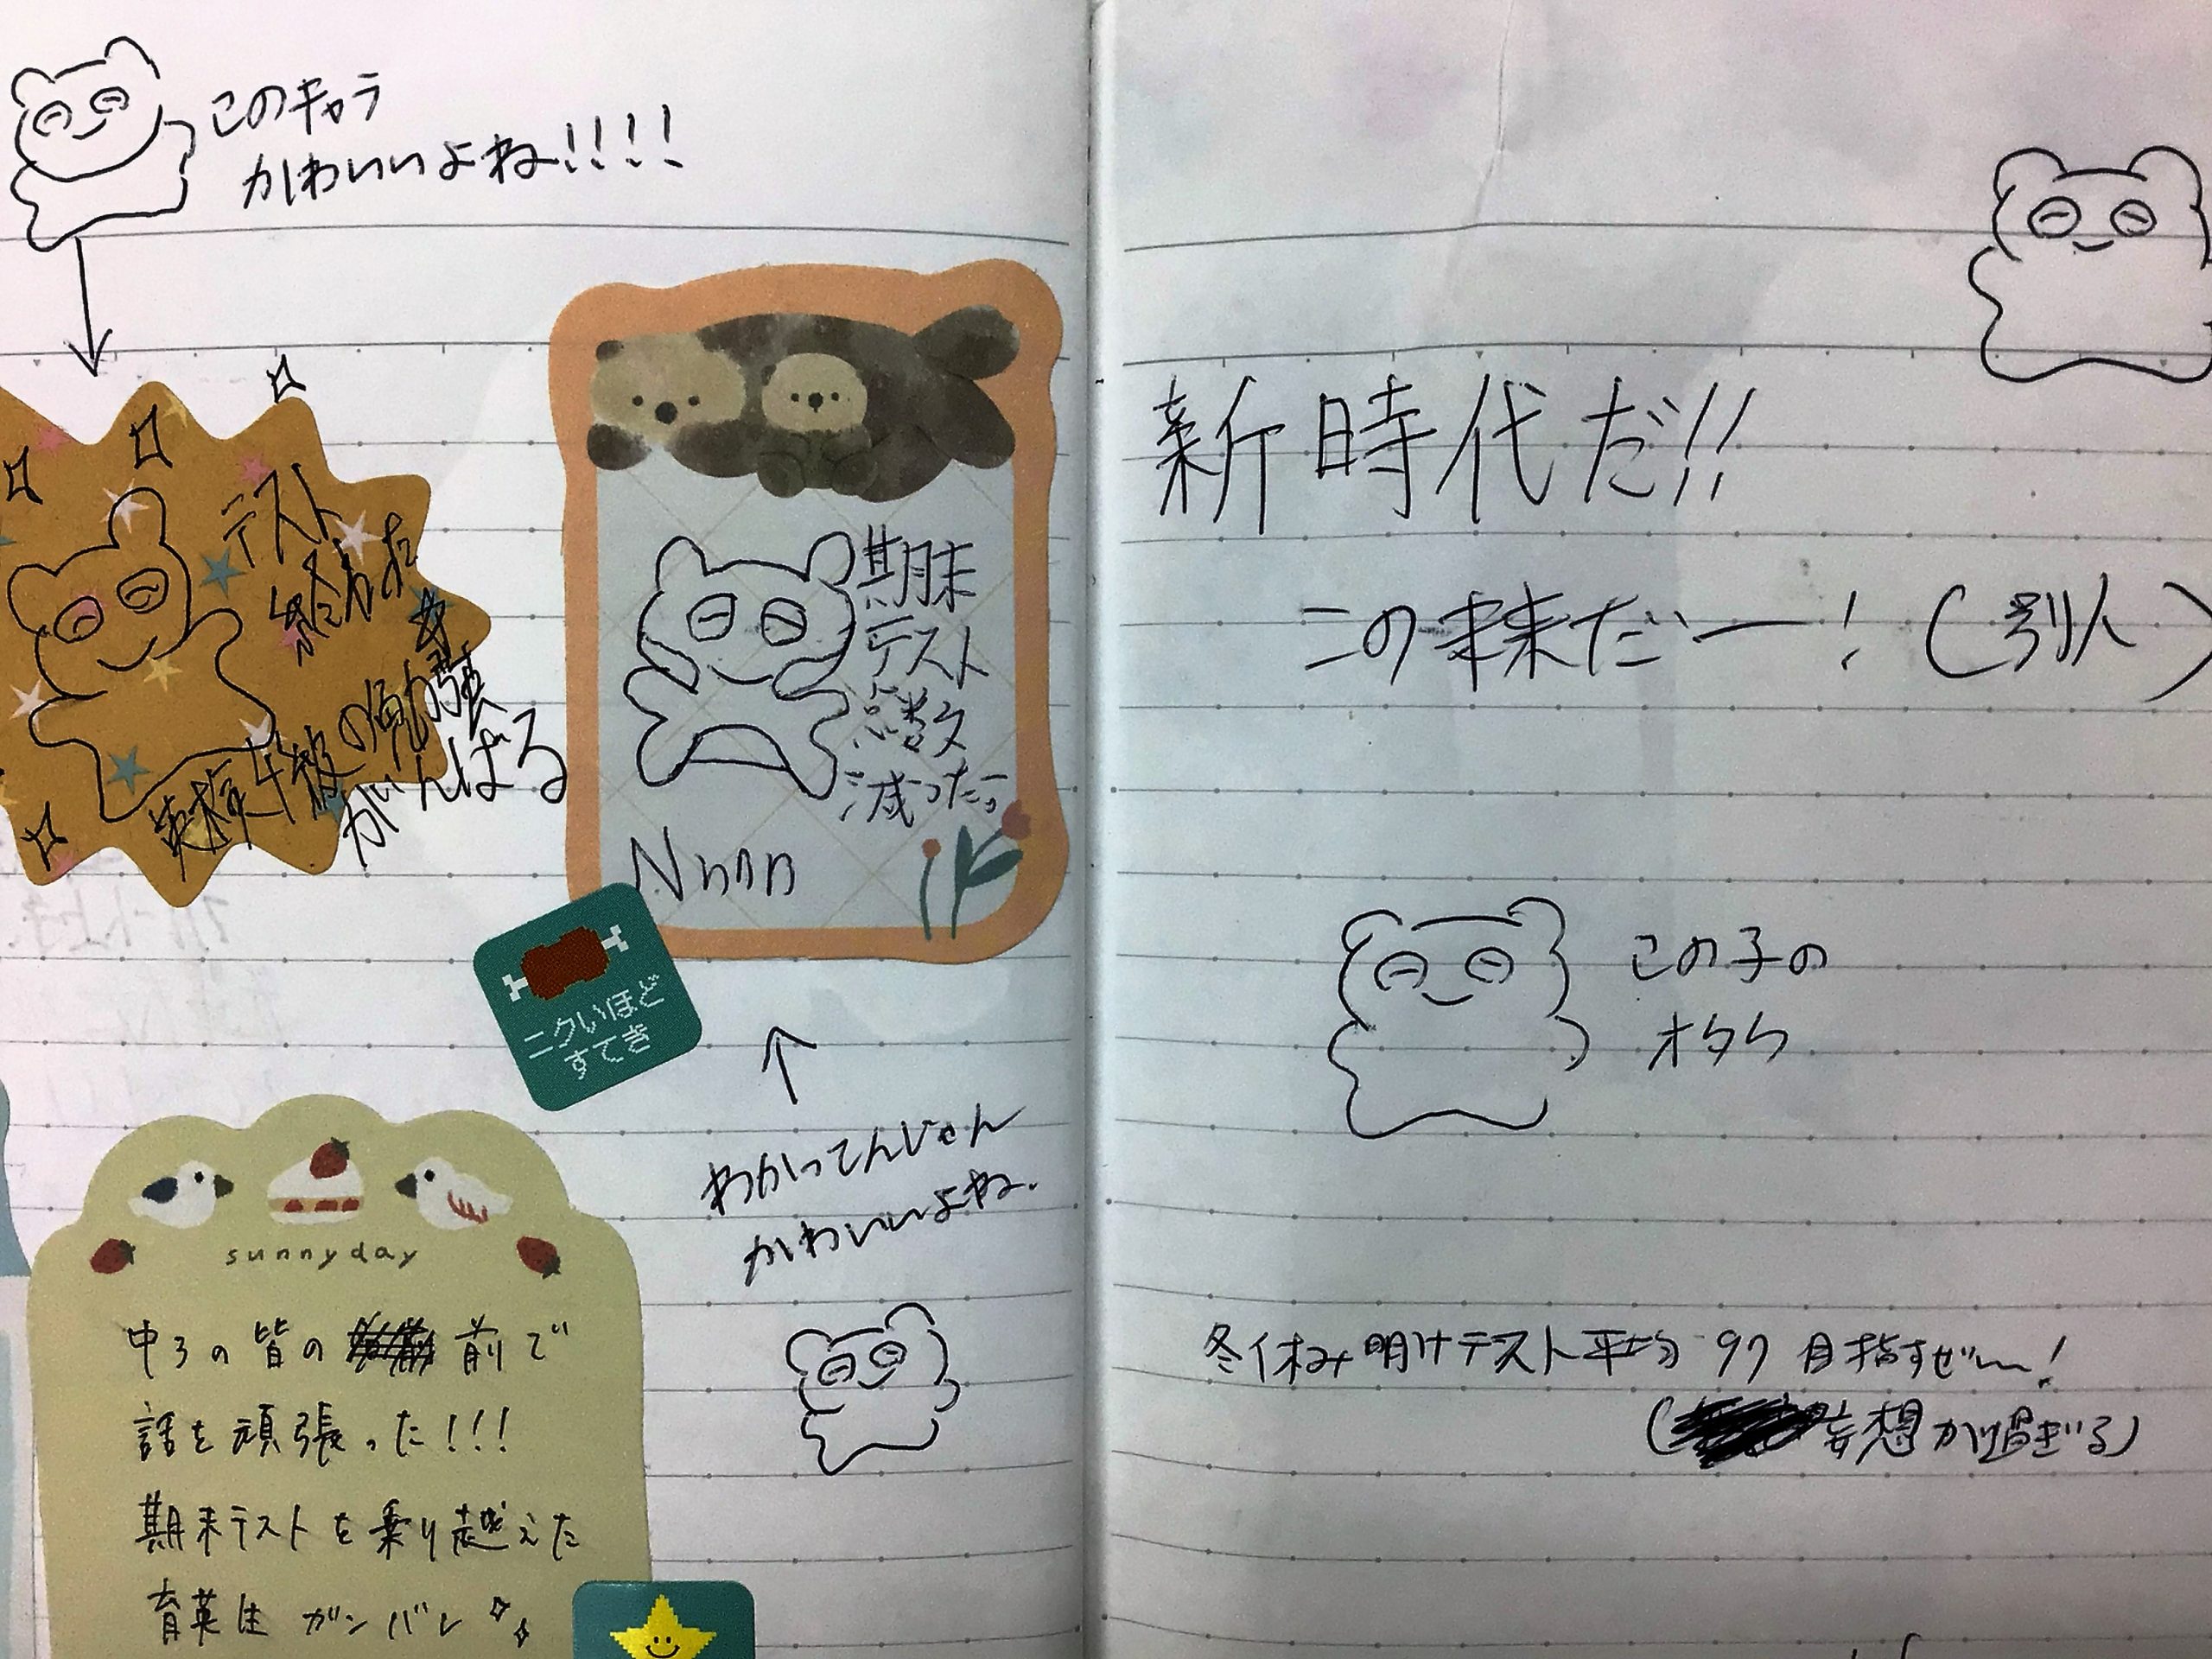 このキャラ
かわいいよね!!!!
テスト
終わた
英検準2級の勉強
がんばる
期末
テスト
点数
減ったっ
Nnnn
ニクいほど
すてき
わかってんじゃん
かわいいよね.
sunnyday
中3の皆の 前で
話を頑張った!!!
期末テストを乗り越えた
育英生 ガンバレ
新時代だ!!
この未来だー!(別人)
この子の
オタク
冬休み明けテスト平均 97 目指すぜ〜!
( 妄想が過ぎる)